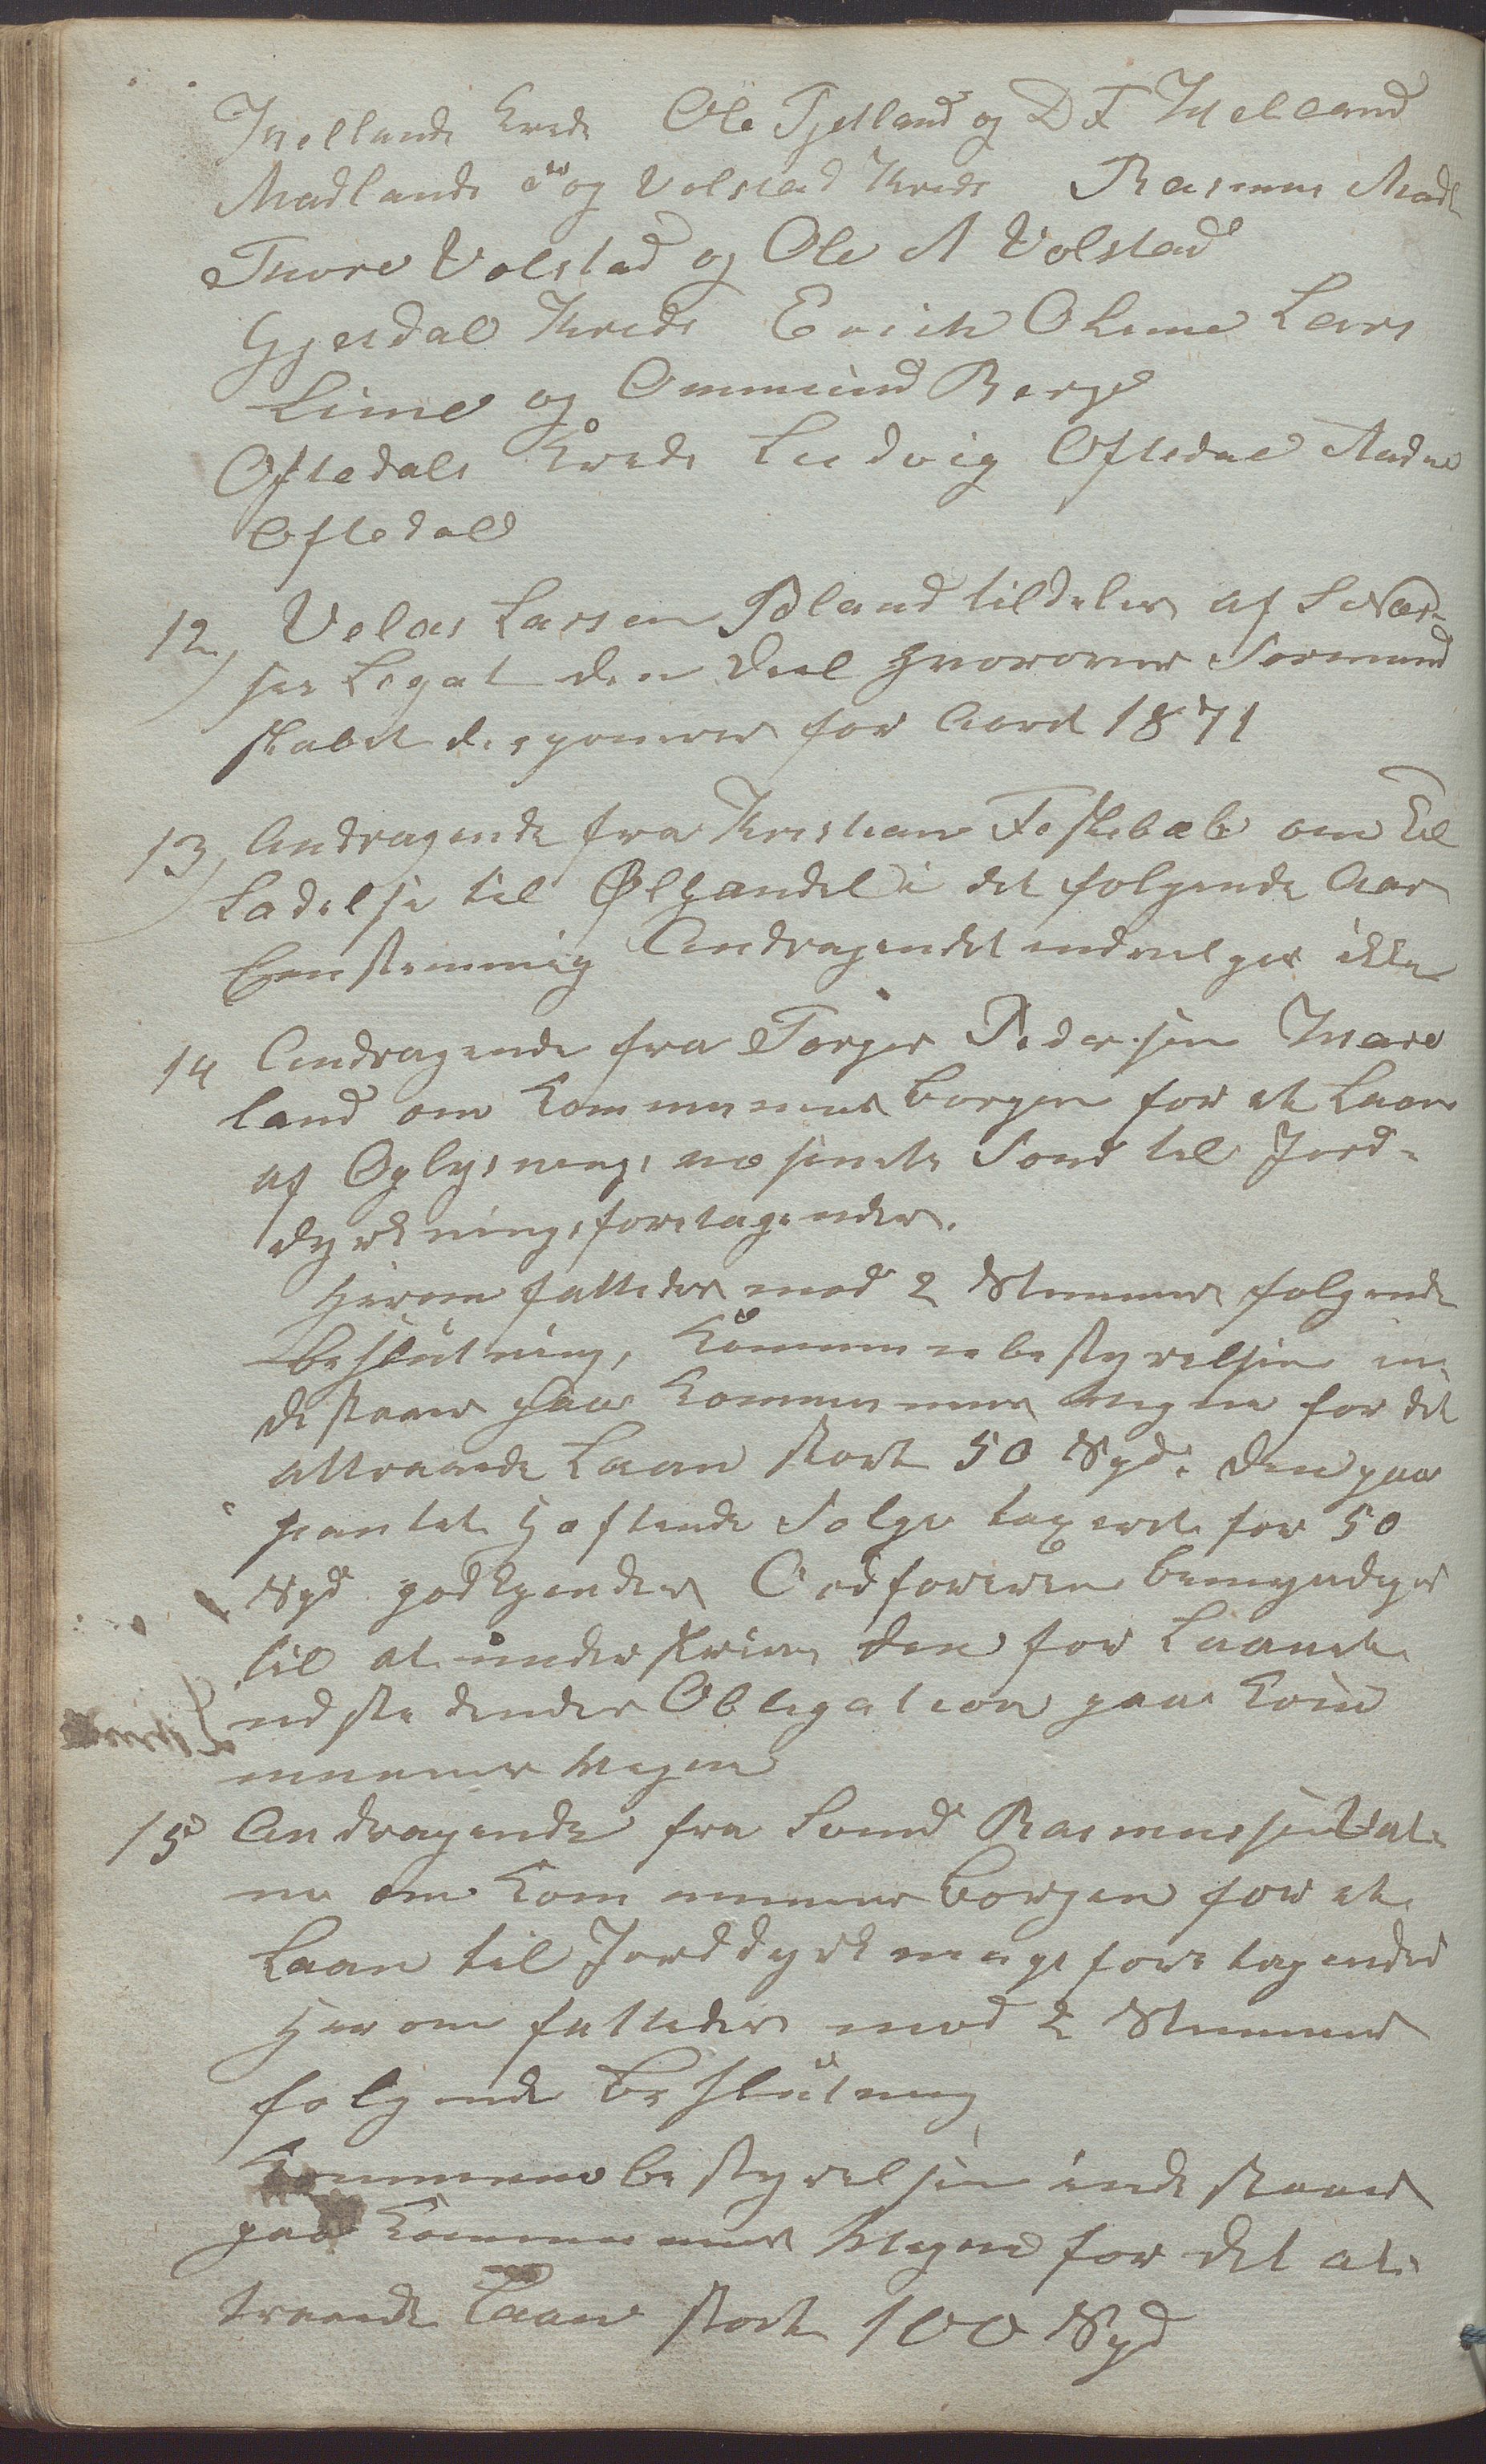 Mellands Kreds Ole Tjetland og D T Melland
Madlands og Volstad Kreds Rasmus Madl
Thore Volstad og Ole A Volstad
Gjesdal Kreds Erich O Lime Lars
Lime og Ommund Berge
Oftedals Kreds Ludvig Oftedal Aadne
Oftedal
12, Larsen Øland tildeles af
ses Legat den Deel hvorover Formand
skabet disponerer for Aaret 1871
13, Andragende fra Kristian Feskebæk om Til
ladelse til Ølhandel i det følgende Aar
Eenstemmig Andragendet indvelges ikke
14 Andragende fra Torger Pedersen
land om Kommunens Borgen for et Laan
af Oplysningsvæsenets Fond til Jord-
dyrkningsforetagender.
Herom fattedes med 2 Stemmer følgende
Beslutning, Kommunebestyrelsen in-
destaaer paa Kommunens Vegne for det
attraaede Laan stort 50 Spd. Den paa
pantet heftende Følge taxeret for 50
Spd godkjendes Ordføreren bemyndiges
til at underskrive den for Laanet
udstedendes Obligation paa Kom
munens Vegne
15 Andragende fra Svend Rasmussen Vat-
ne om Kommunens Borgen for et
Laan til Jorddyrkningsforetagender
Herom fattedes med 2 Stemmer
følgende Beslutning
Kommunebestyrelsen indestaaer
paa Kommunens Vegne for det at-
traaede Laan stort 100 Spd